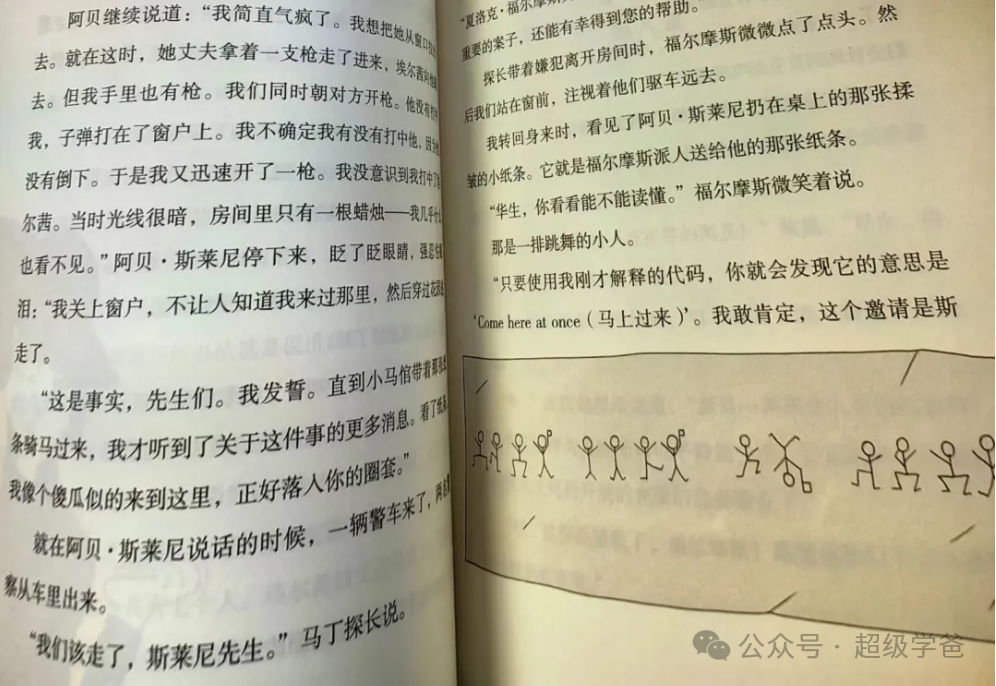 阿贝继续说道：“我简直气疯了。我想把她从窗口
去。就在这时，她丈夫拿着一支枪走了进来，埃尔茜向
去。但我手里也有枪。我们同时朝对方开枪。他没有打中
我，子弹打在了窗户上。我不确定我有没有打中他，因为
没有倒下。于是我又迅速开了一枪。我没意识到我打中了
尔茜。当时光线很暗，房间里只有一根蜡烛——我几乎什
也看不见。”阿贝·斯莱尼停下来，眨了眨眼睛，强忍住
泪：“我关上窗户，不让人知道我来过那里，然后穿过花园
走了。
“这是事实，先生们。我发誓。直到小马倌带着那张
条骑马过来，我才听到了关于这件事的更多消息。看了纸条
我像个傻瓜似的来到这里，正好落入你的圈套。”
就在阿贝·斯莱尼说话的时候，一辆警车来了，两名
察从车里出来。
“我们该走了，斯莱尼先生。”马丁探长说。
“夏洛克·福尔摩斯
重要的案子，还能有幸得到您的帮助。”
探长带着嫌犯离开房间时，福尔摩斯微微点了点头。然
后我们站在窗前，注视着他们驱车远去。
我转回身来时，看见了阿贝·斯莱尼扔在桌上的那张揉
皱的小纸条。它就是福尔摩斯派人送给他的那张纸条。
“华生，你看看能不能读懂。”福尔摩斯微笑着说。
那是一排跳舞的小人。
“只要使用我刚才解释的代码，你就会发现它的意思是
‘Come here at once（马上过来）’。我敢肯定，这个邀请是斯
公众号·超级学爸